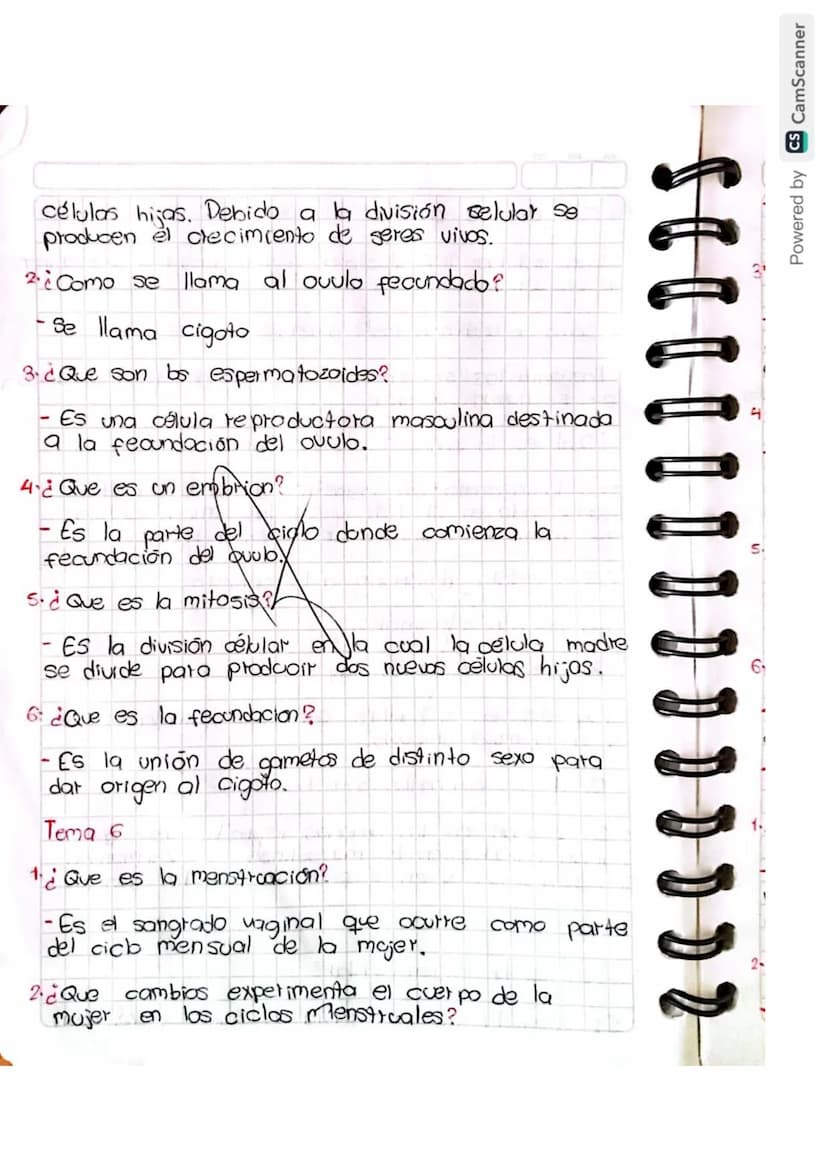 células hijas. Debido a la división selular se
producen el crecimiento de seres vivos.
2.¿Como se llama al ovulo fecundado?
- Se llama cigoto
3.¿Que son los espermatozoides?
- Es una célula reproductora masculina destinada
a la fecundación del ovulo.
4.¿Que es un embrion?
- Es la parte del ciglo donde comienza la
fecundación del ovulo.
5.¿Que es la mitosis?
- Es la división célular en la cual la célula madre
se divide para producir dos nuevas células hijas.
6.¿Que es la fecundacion?
- Es la unión de gametos de distinto sexo para
dar origen al cigoto.
Tema 6
1.¿Que es la menstruación?
- Es el sangrado vaginal que ocurre como parte
del ciclo mensual de la mujer.
2.¿Que cambios experimenta el cuerpo de la
mujer en los ciclos Menstruales?
3
4
5.
6
1.
2-
Powered by CS CamScanner